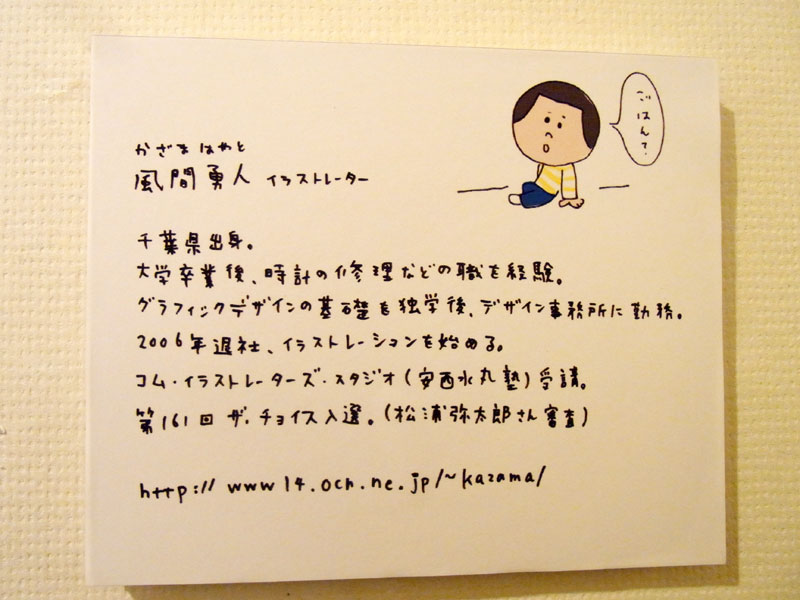 ごはんて?
かざま はやと
風間勇人 イラストレーター
千葉県出身。
大学卒業後、時計の修理などの職を経験。
グラフィックデザインの基礎を独学後、デザイン事務所に勤務。
2006年退社、イラストレーションを始める。
コム・イラストレーターズ・スタジオ(安西水丸塾)受講。
第161回 ザ・チョイス入選。(松浦弥太郎さん審査)
http://www14.ocn.ne.jp/~kazama/